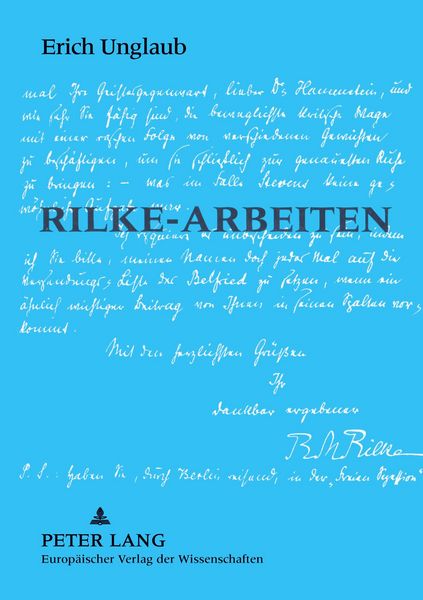 Erich Unglaub
mal Ihre Geistesgegenwart, lieber Dr und
wie sehr Sie fähig sind, die beweglichste kritische Waage
mit einer raschen Folge von verschiedenen Gewichten
zu beschäftigen, um sie schließlich zur genauesten Ruhe
zu bringen: – was im Falle keine ge-
wöhnliche war.
RILKE-ARBEITEN
unbescheiden zu sein, indem
ich Sie bitte, meinen Namen doch jedes Mal auf die
Versendungs-Liste des Belfried zu setzen, wenn ein
ähnlich wichtiger Beitrag von Ihnen in seinen Spalten vor-
kommt.
Mit den herzlichsten Grüßen
Ihr
dankbar ergebener
RMRilke
P. S.: haben Sie, durch Berlin reisend, in der „Freien Sezession"
PETER LANG
Europäischer Verlag der Wissenschaften